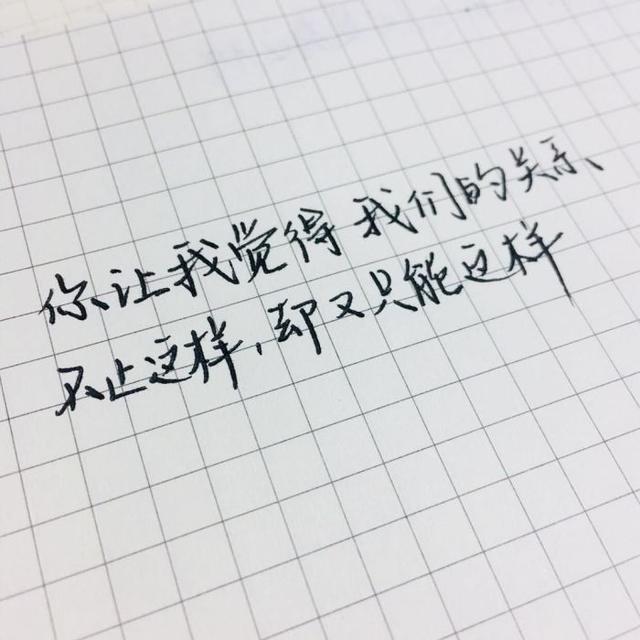 你让我觉得我们的关系、
不止这样，却又只能这样